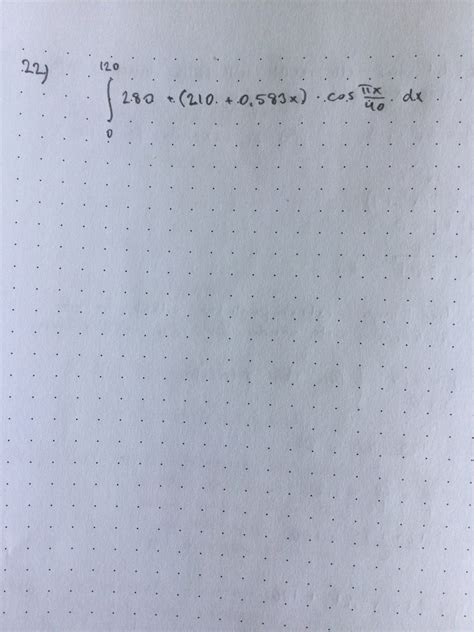 22)
120
∫ 280 + (210 + 0.583x) · cos πx/40 · dx
0